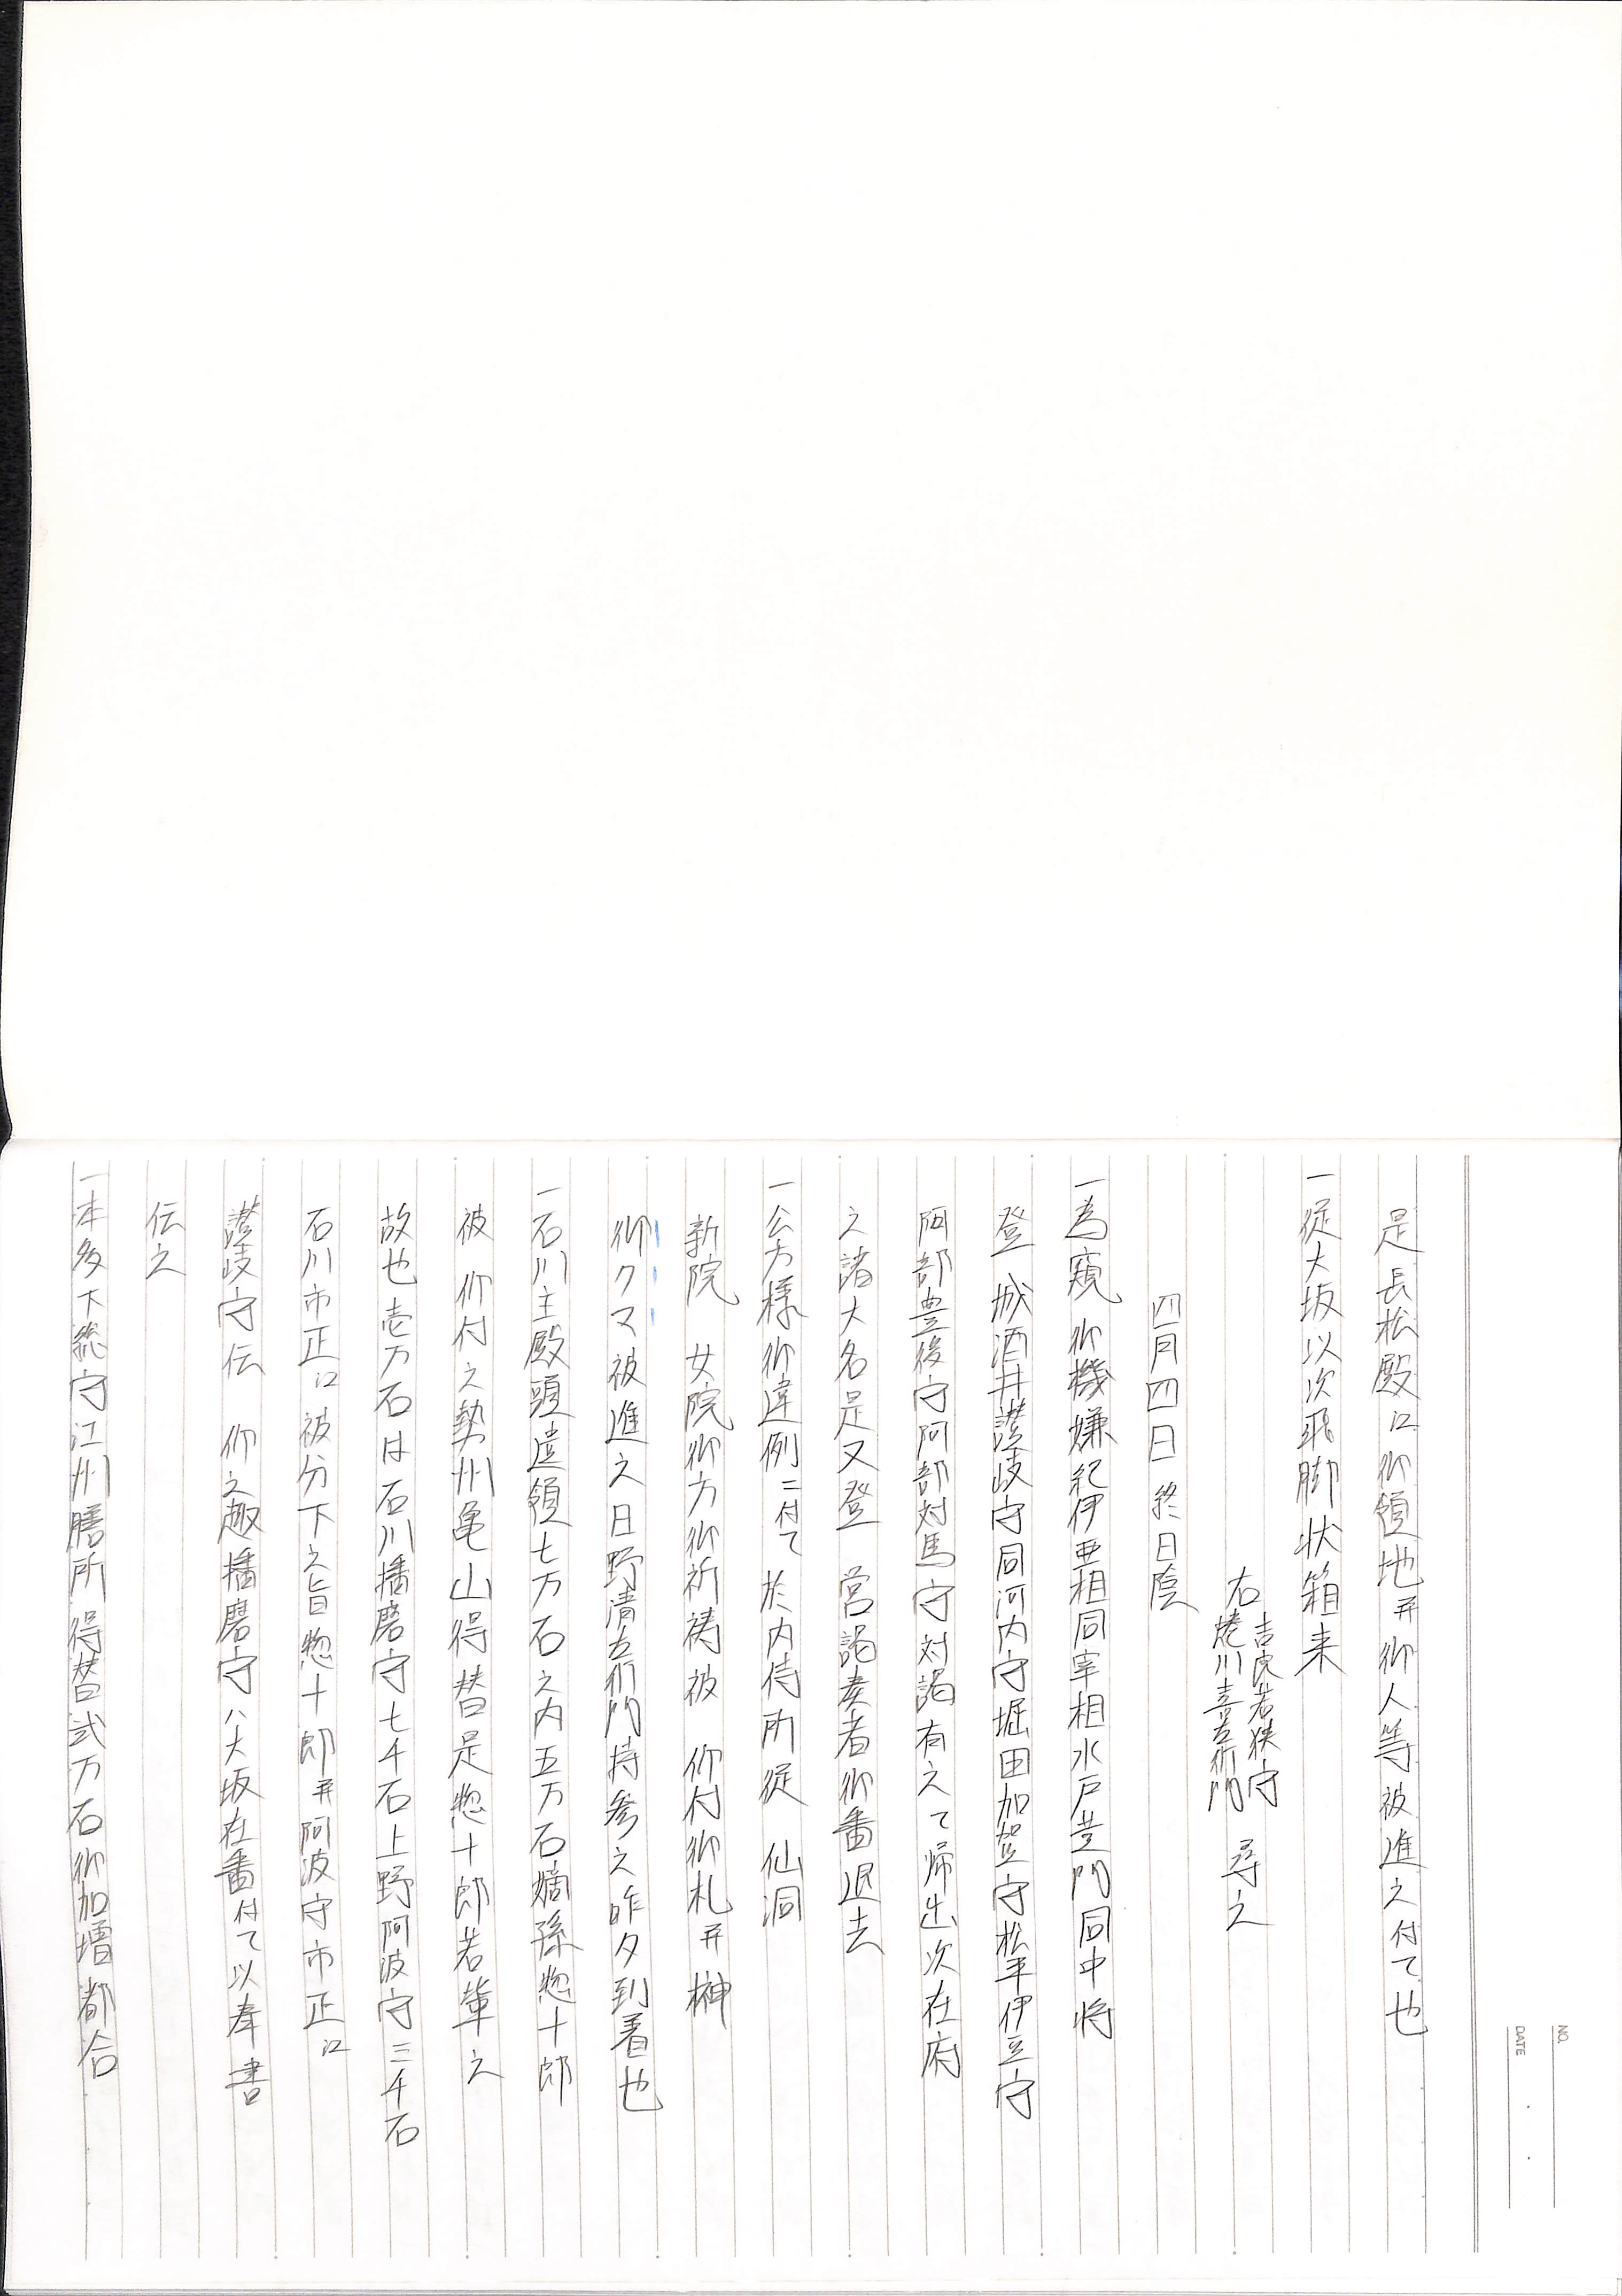 NO.
DATE
是長松殿江御領地并御人等被進之付て也
一従大坂以次飛脚状箱来
右 吉良若狭守
焼川喜左衛門 尋之
四月四日 終日陰
一為窺御機嫌紀伊亜相同宰相水戸黄門同中将
登 城酒井讃岐守同河内守堀田加賀守松平伊豆守
阿部豊後守阿部対馬守対謁有之て帰出次在府
之諸大名是又登 営謁奏者御番退去
一公方様御違例ニ付て於内侍所従 仙洞
新院 女院御方御祈祷被 仰付御札并榊
御クマ被進之日野清左衛門持参之昨夕到着也
一石川主殿頭遺領七万石之内五万石嫡孫惣十郎
被 仰付之勢州亀山得替是惣十郎若輩之
故也壱万石は石川播磨守七千石上野阿波守三千石
石川市正江被分下之旨惣十郎并阿波守市正江
讃岐守伝 仰之趣播磨守ハ大坂在番付て以奉書
伝之
一本多下総守江州膳所得替弐万石御加増都合